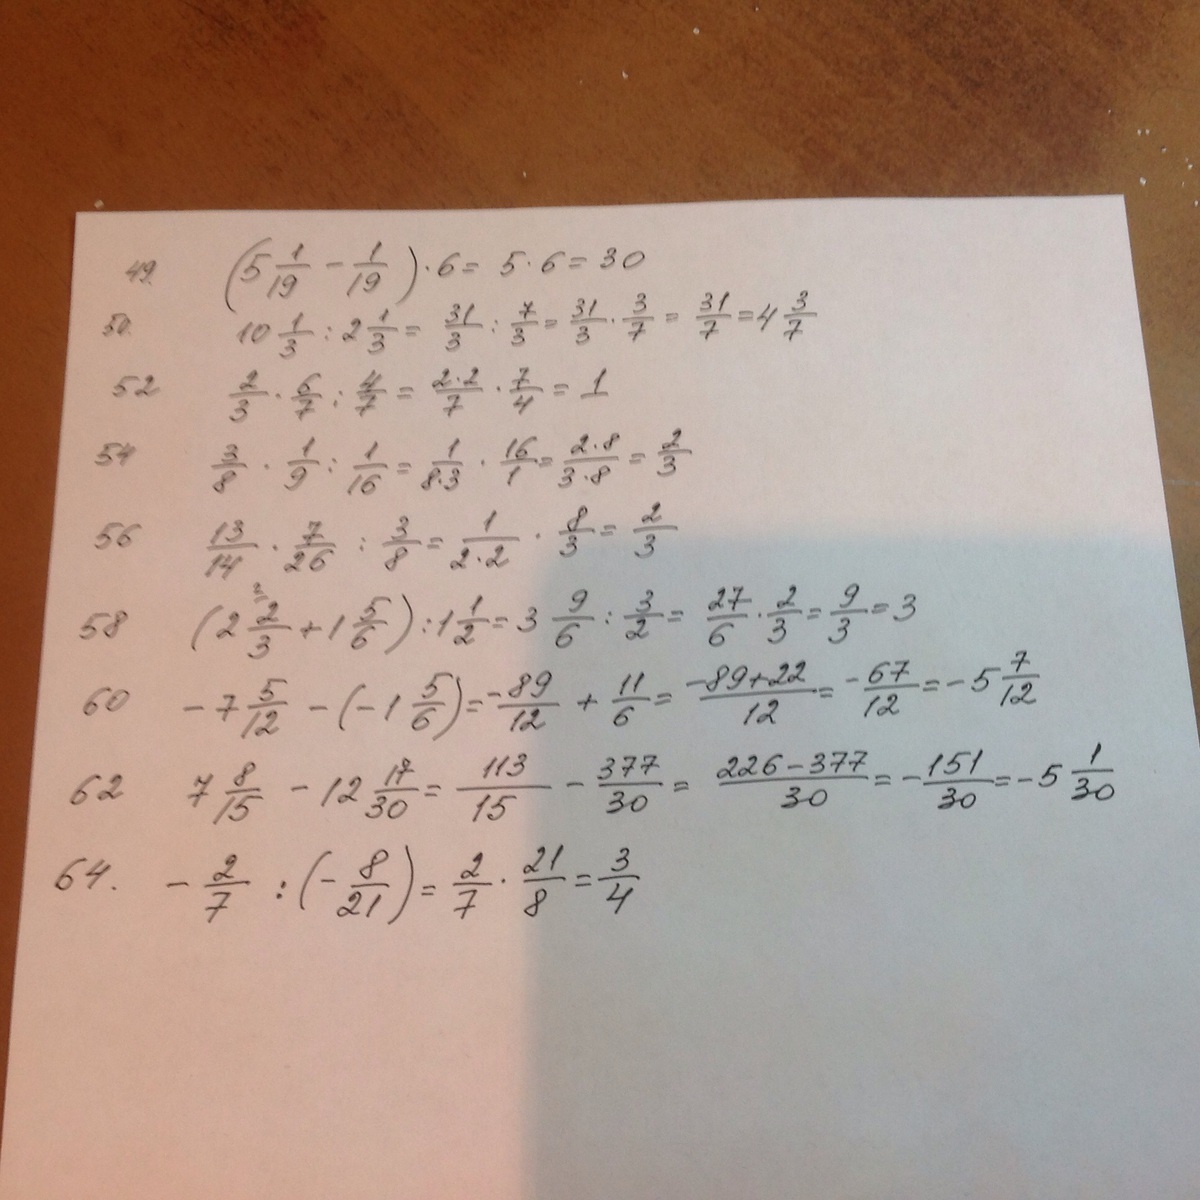 49. (5 1/19 - 1/19) · 6 = 5 · 6 = 30
50. 10 1/3 : 2 1/3 = 31/3 : 7/3 = 31/3 · 3/7 = 31/7 = 4 3/7
52 2/3 · 6/7 : 4/7 = 2·2/7 · 7/4 = 1
54 3/8 · 1/9 : 1/16 = 1/8·3 · 16/1 = 2·8/3·8 = 2/3
56 13/14 · 7/26 : 3/8 = 1/2·2 · 8/3 = 2/3
58 (2 2/3 + 1 5/6) : 1 1/2 = 3 9/6 : 3/2 = 27/6 · 2/3 = 9/3 = 3
60 -7 5/12 - (-1 5/6) = -89/12 + 11/6 = -89+22/12 = -67/12 = -5 7/12
62 7 8/15 - 12 17/30 = 113/15 - 377/30 = 226-377/30 = -151/30 = -5 1/30
64. -2/7 : (-8/21) = 2/7 · 21/8 = 3/4